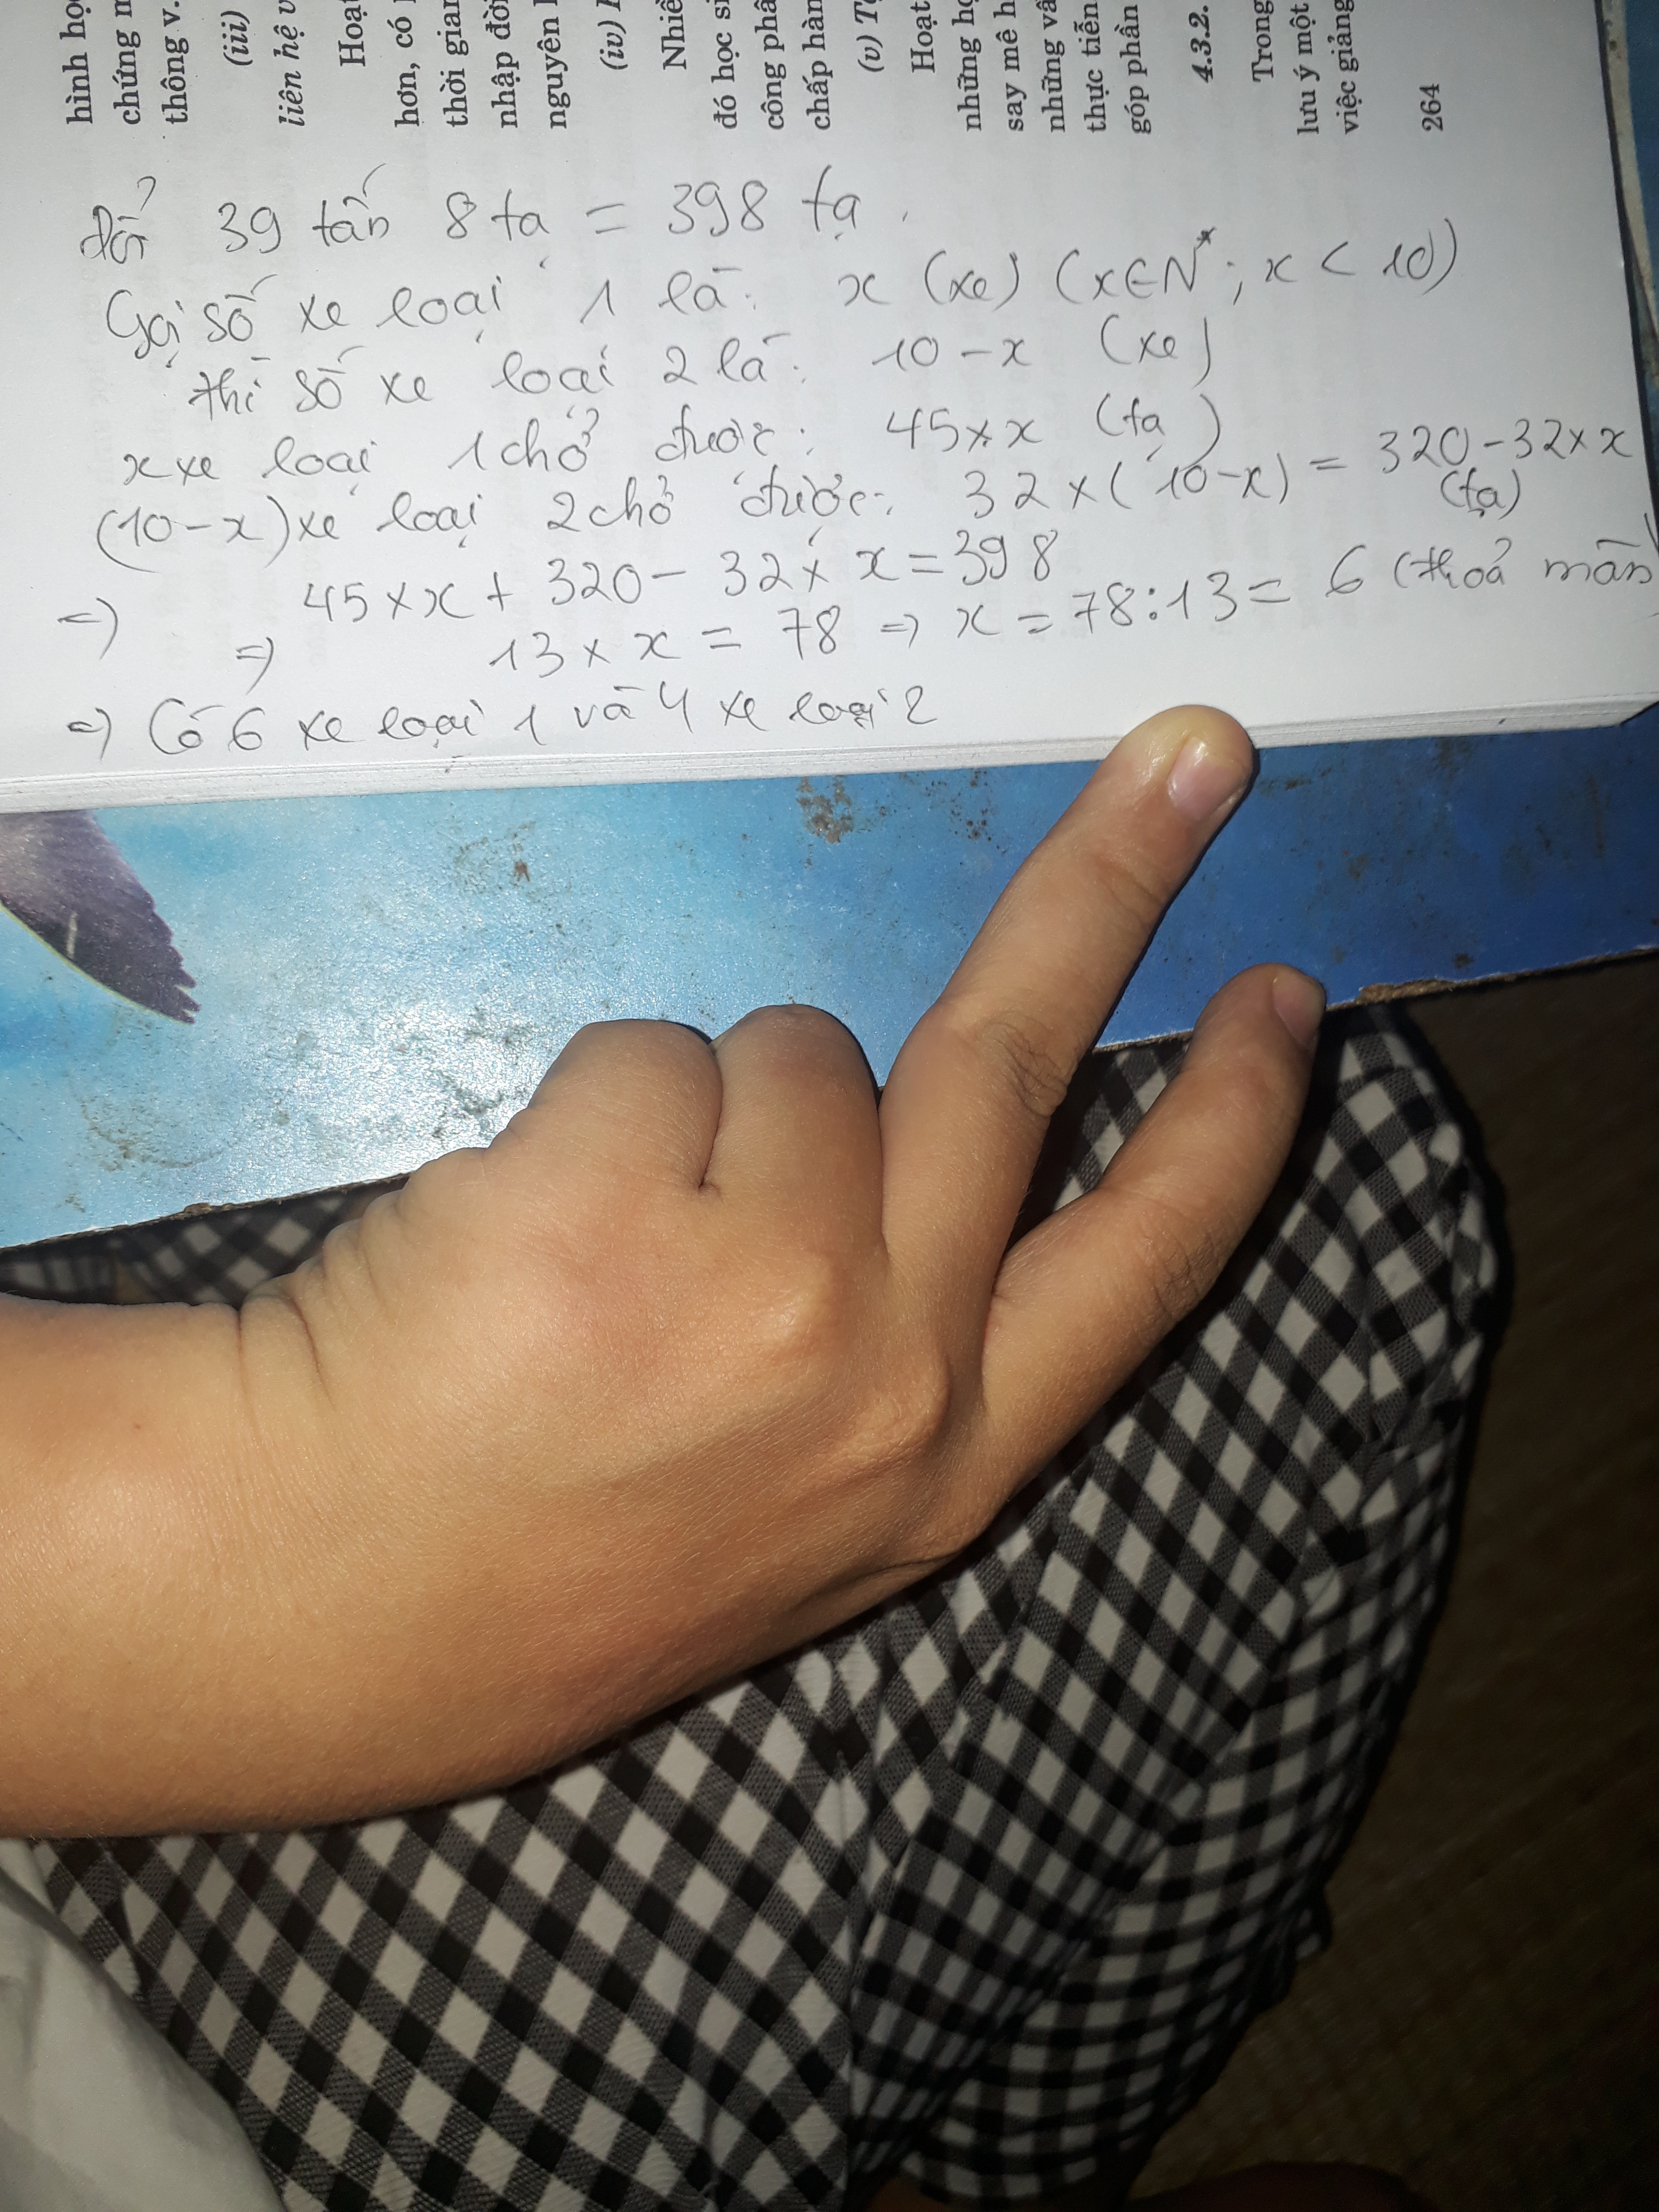 hình học
chứng m
thông v.
(iii)
liên hệ v
Hoạt
hơn, có
thời gian
nhập đời
nguyên
(iv)
Nhiề
đó học si
công phâ
chấp hàn
(v)
Hoạt
những họ
say mê h
những vấ
thực tiễn
góp phần
4.3.2.
Trong
lưu ý một
việc giảng
264
đổi 39 tấn 8 tạ = 398 tạ.
Gọi số xe loại 1 là: x (xe) (x∈N*; x < 10)
thì số xe loại 2 là: 10 - x (xe)
x xe loại 1 chở được: 45 × x (tạ)
(10 - x) xe loại 2 chở được: 32 × (10 - x) = 320 - 32 × x
(tạ)
=> 45 × x + 320 - 32 × x = 398
=> 13 × x = 78 => x = 78 : 13 = 6 (thoả mãn
=> Có 6 xe loại 1 và 4 xe loại 2